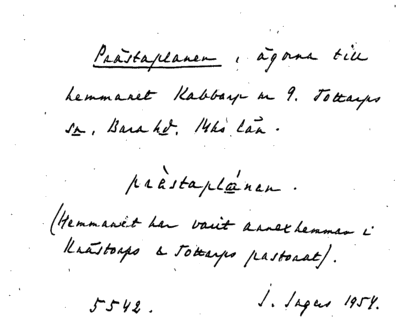 Prästaplanen, ägorna till
hemmanet Kabbarp nr 9. Tottarps
sn, Bara hd. Mhs län.
prästaplánan.
(Hemmanet har varit annexhemman i
Knästorps & Tottarps pastorat).
5542. I. Ingers 1954.